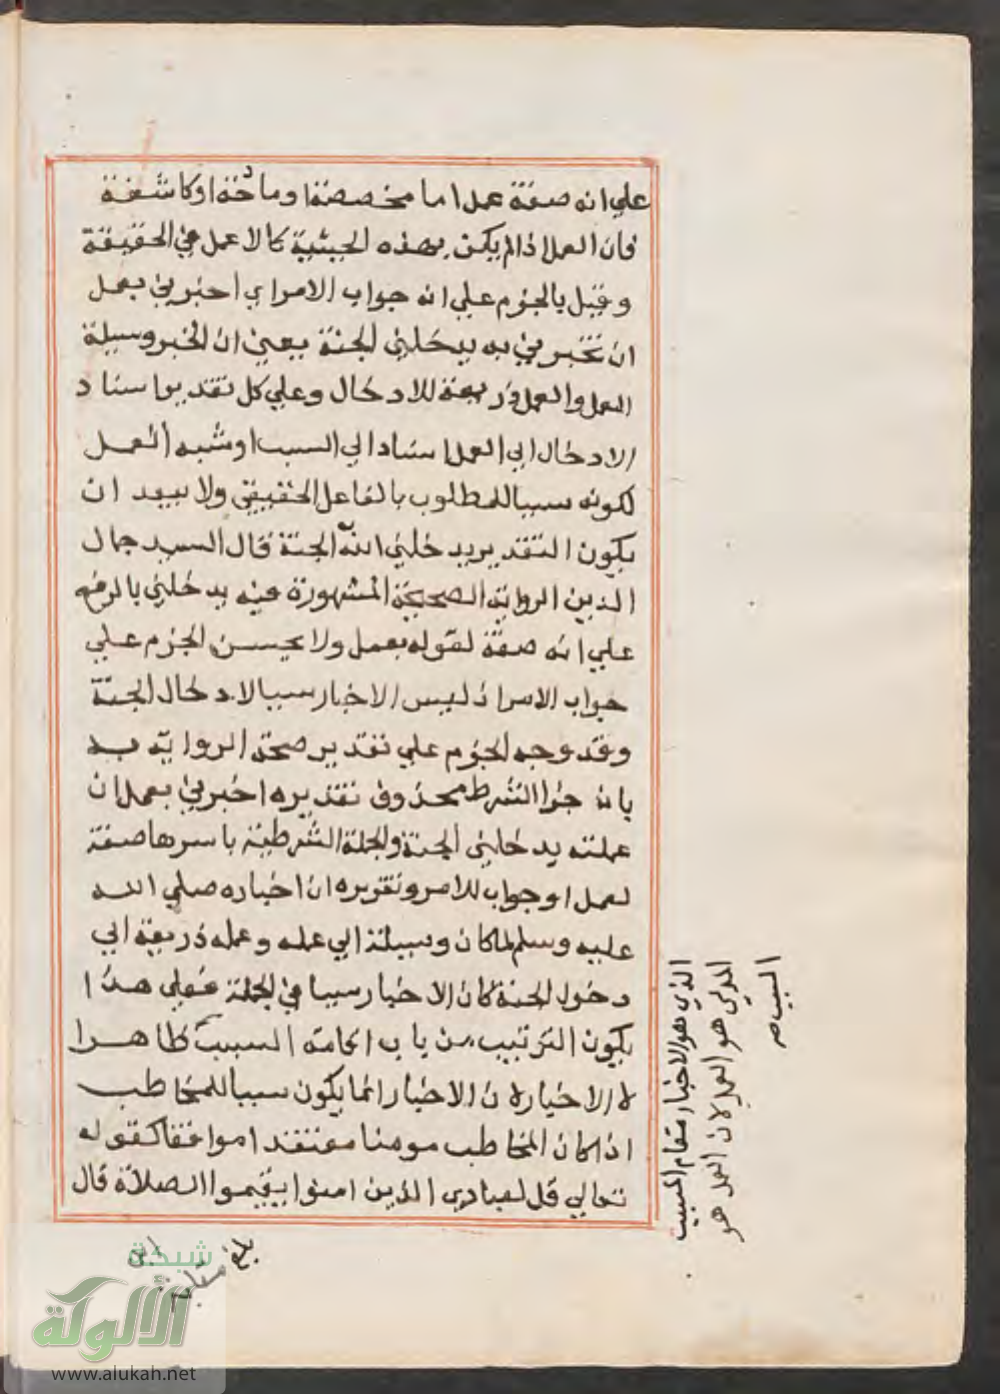 علي انه صفة عمل اما مخصصة او مادحة او كاشفة
فان العمل اذا لم يكن بهذه الحيثية كالا عمل في الحقيقة
وقيل بالجزم علي انه جواب الامر اي اخبرني بعمل
ان تخبرني به يدخلني الجنة يعني ان الخبر وسيلة
العمل والعمل ذريعة للادخال وعلي كل تقدير اسناد
الادخال الي العمل اسناد الي السبب او شبه العمل
لكونه سببا للمطلوب بالفاعل الحقيقي ولا يبعد ان
يكون التقدير يدخلني الله الجنة قال السيد جمال
الدين الرواية الصحيحة المشهورة فيه يدخلني بالرفع
علي انه صفة لقوله بعمل ولا يحسن الجزم علي
جواب الامر اذ ليس الاخبار سببا لادخال الجنة
وقد وجه الجزم علي تقدير صحة الرواية به
بان جزا الشرط محذوف تقديره اخبرني بعمل ان
عملته يدخلني الجنة والجملة الشرطية باسرها صفة
لعمل او جواب للامر وتقريره ان اخباره صلي الله
عليه وسلم لما كان وسيلة الي عمله وعمله ذريعة الي
دخول الجنة كان الاخبار سببا في الجملة فعلي هذا
يكون الترتيب من باب اقامة السبب ظاهرا
لا الاخبار لان الاخبار انما يكون سببا للمخاطب
اذا كان المخاطب مومنا معتقدا موافقا كقوله
تعالي قل لعبادي الذين امنوا يقيموا الصلاة قال
الذي هو الاخبار مقام المسبب
الذي هو العمل لان العمل هو
السبب صح
بلغ مقابلة
شبكة
الألوكة
www.alukah.net